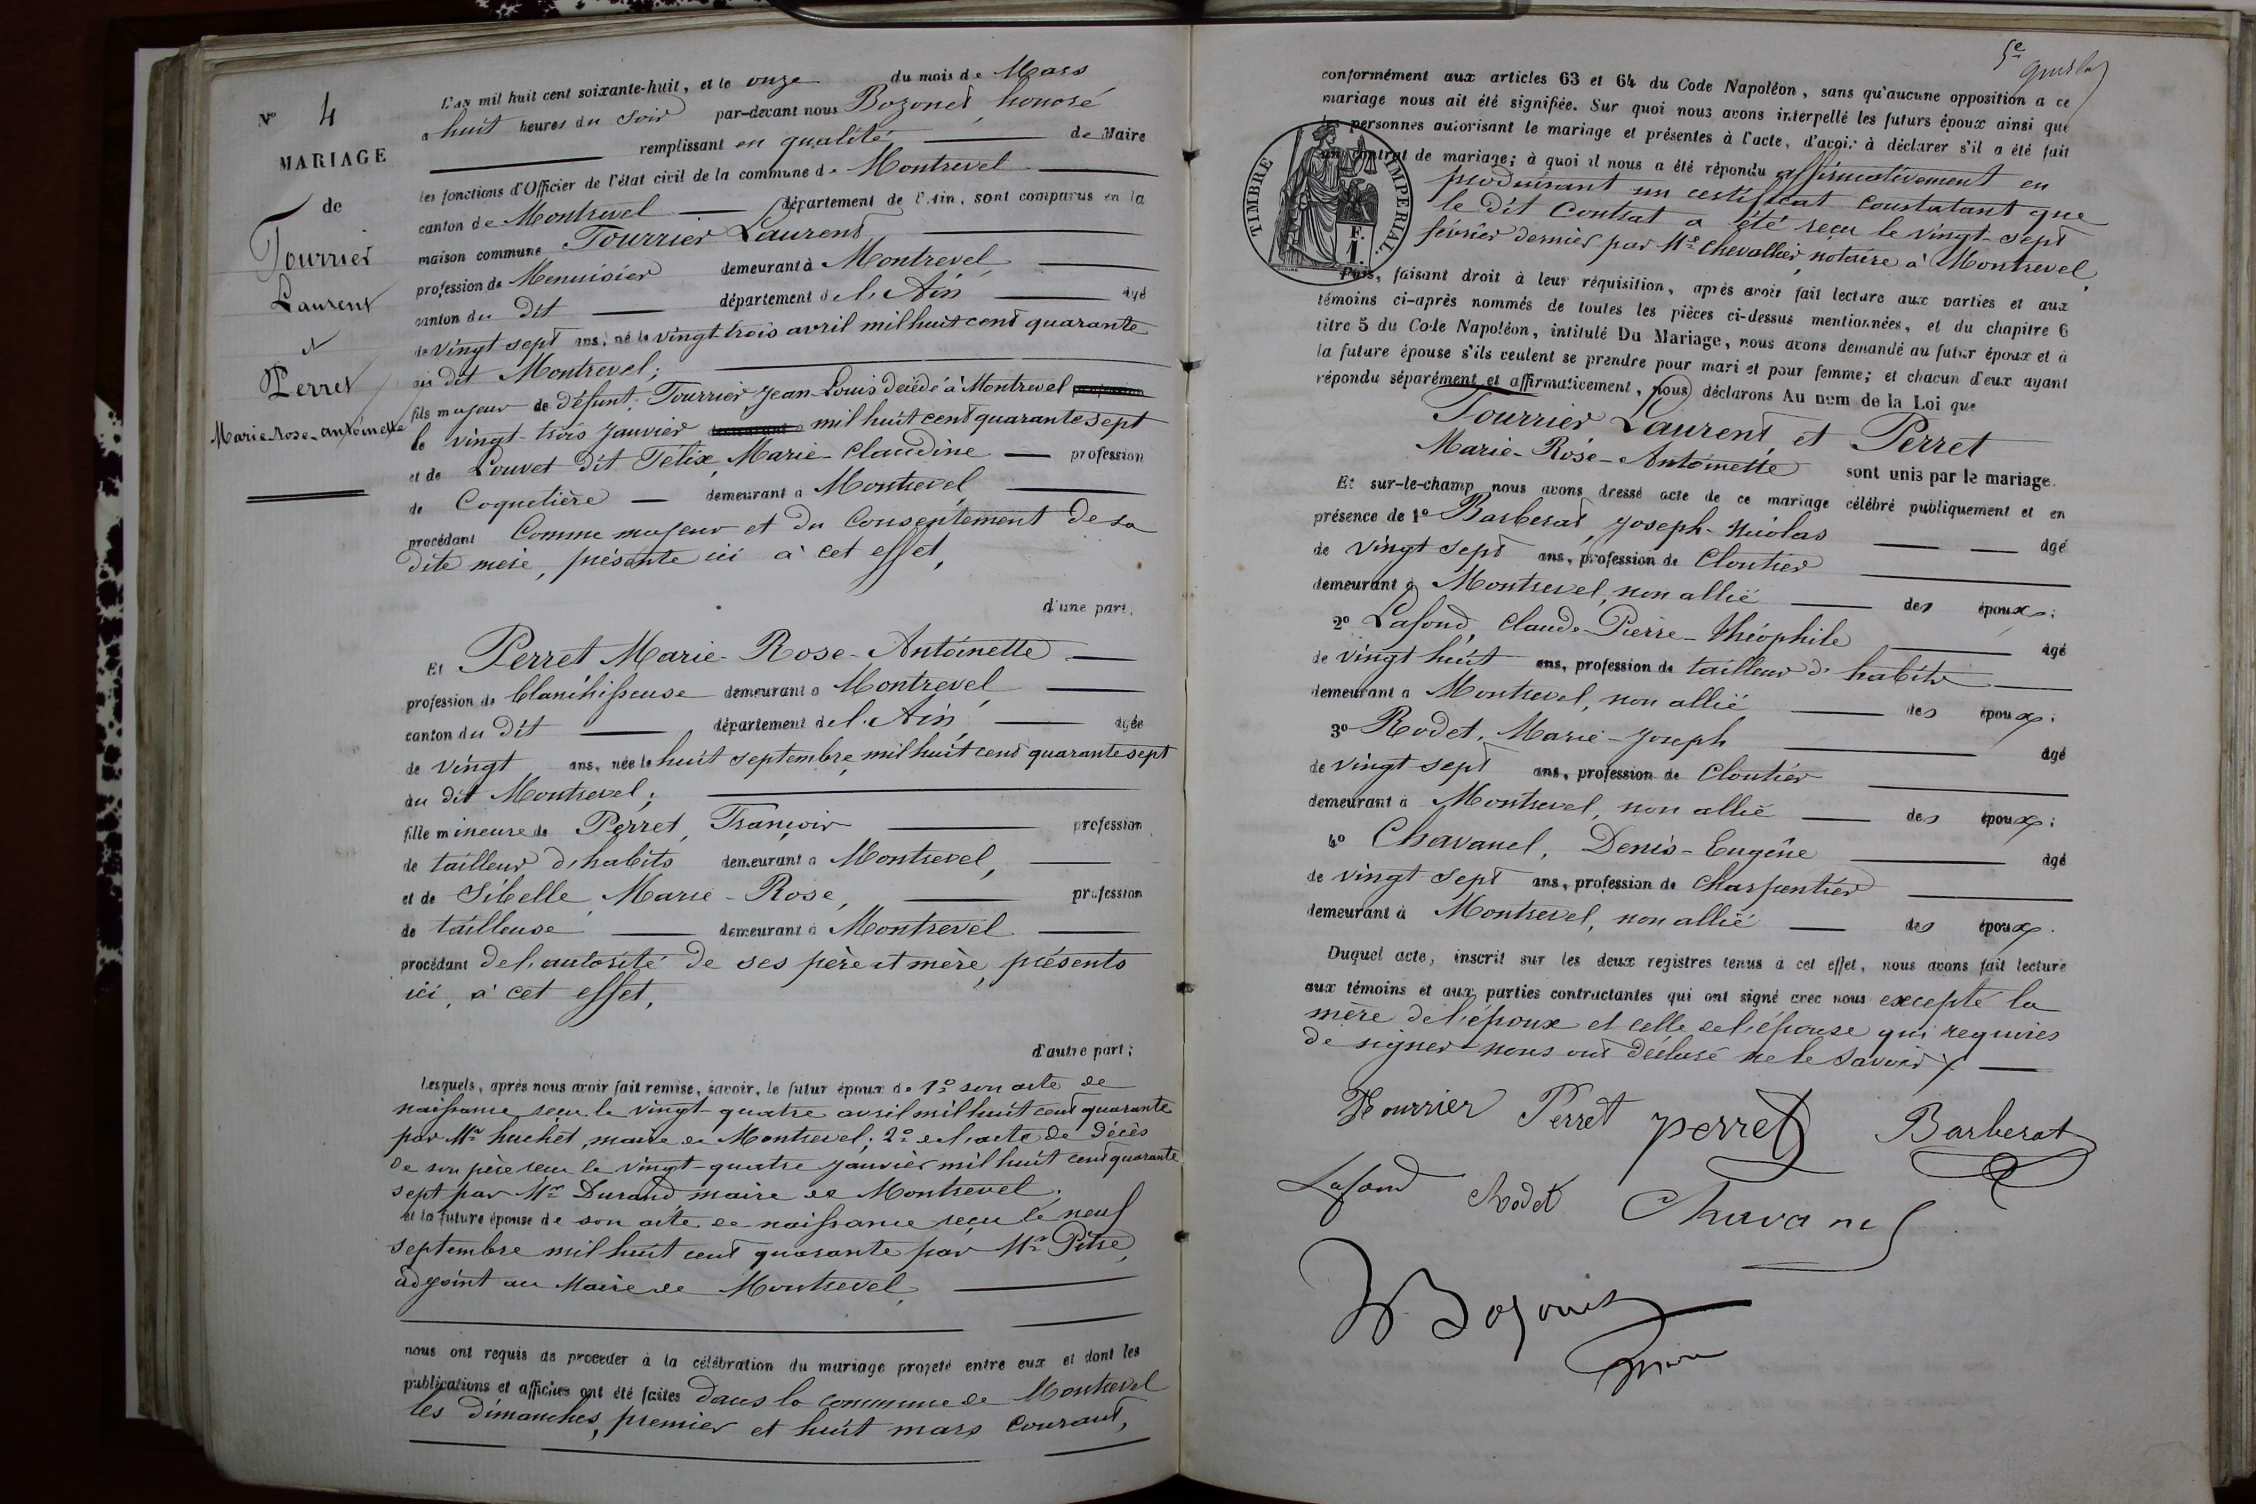 Nº 4
MARIAGE
de
Fourrier
Laurent
et
Perret
Marie-Rose-Antoinette
L'an mil huit cent soixante-huit, et le onze du mois de Mars
a huit heures du Soir par-devant nous Bozonet, honoré
remplissant en qualité de Maire
les fonctions d'Officier de l'état civil de la commune de Montrevel
canton de Montrevel département de l'Ain, sont comparus en la
maison commune Fourrier Laurent
profession de Menuisier demeurant à Montrevel
canton du dit département de l'Ain âgé
de vingt sept ans, né le vingt-trois avril mil huit cent quarante
au dit Montrevel;
fils majeur de défunt, Fourrier Jean-Louis décédé à Montrevel
le vingt-trois Janvier mil huit cent quarante sept
et de Louvet dit Félix, Marie-Claudine profession
de Coquetière demeurant à Montrevel
procédant Comme majeur et du Consentement de sa
dite mère, présente ici à cet effet,
d'une part,
Et Perret Marie-Rose-Antoinette
profession de blanchisseuse demeurant à Montrevel
canton du dit département de l'Ain, âgée
de vingt ans, née le huit septembre, mil huit cent quarante sept
au dit Montrevel;
fille mineure de Perret, François profession
de tailleur d'habits demeurant à Montrevel,
et de Sibelle, Marie-Rose, profession
de tailleuse demeurant à Montrevel
procédant de l'autorité de ses père et mère, présents
ici, à cet effet,
d'autre part;
Lesquels, après nous avoir fait remise, savoir, le futur époux de 1º son acte de
naissance reçu le vingt-quatre avril mil huit cent quarante
par Mr huchet, maire de Montrevel; 2º de l'acte de décès
de son père reçu le vingt-quatre Janvier mil huit cent quarante
sept par Mr Durand maire de Montrevel;
et la future épouse de son acte de naissance reçu le neuf
septembre mil huit cent quarante par Mr Pitre,
adjoint au Maire de Montrevel,
nous ont requis de procéder à la célébration du mariage projeté entre eux et dont les
publications et affiches ont été faites dans la commune de Montrevel
les dimanches, premier et huit mars courant,
5e
conformément aux articles 63 et 64 du Code Napoléon, sans qu'aucune opposition a ce
mariage nous ait été signifiée. Sur quoi nous avons interpellé les futurs époux ainsi que
les personnes autorisant le mariage et présentes à l'acte, d'avoir à déclarer s'il a été fait
un contrat de mariage; à quoi il nous a été répondu affirmativement en
produisant un certificat constatant que
le dit Contrat a été reçu le vingt-sept
février dernier par Me Chevallier, notaire à Montrevel,
TIMBRE IMPÉRIAL.
1 F.
Puis, faisant droit à leur réquisition, après avoir fait lecture aux parties et aux
témoins ci-après nommés de toutes les pièces ci-dessus mentionnées, et du chapitre 6
titre 5 du Code Napoléon, intitulé Du Mariage, nous avons demandé au futur époux et à
la future épouse s'ils veulent se prendre pour mari et pour femme; et chacun d'eux ayant
répondu séparément et affirmativement, nous déclarons Au nom de la Loi que
Fourrier Laurent et Perret
Marie-Rose-Antoinette sont unis par le mariage.
Et sur-le-champ nous avons dressé acte de ce mariage célébré publiquement et en
présence de 1º Barberat, Joseph-Nicolas âgé
de vingt sept ans, profession de Cloutier
demeurant à Montrevel, non allié des époux;
2º Lafond, Claude-Pierre-Théophile âgé
de vingt huit ans, profession de tailleur d'habits
demeurant à Montrevel, non allié des époux;
3º Rodet, Marie-Joseph âgé
de vingt sept ans, profession de Cloutier
demeurant à Montrevel, non allié des époux;
4º Chavanel, Denis-Eugène âgé
de vingt sept ans, profession de Charpentier
demeurant à Montrevel, non allié des époux.
Duquel acte, inscrit sur les deux registres tenus à cet effet, nous avons fait lecture
aux témoins et aux parties contractantes qui ont signé avec nous excepté la
mère de l'époux et celle de l'épouse qui requises
de signer nous ont déclaré ne le savoir
Fourrier Perret perret Barberat
Lafond Rodet Chavanel
Bozonet
maire